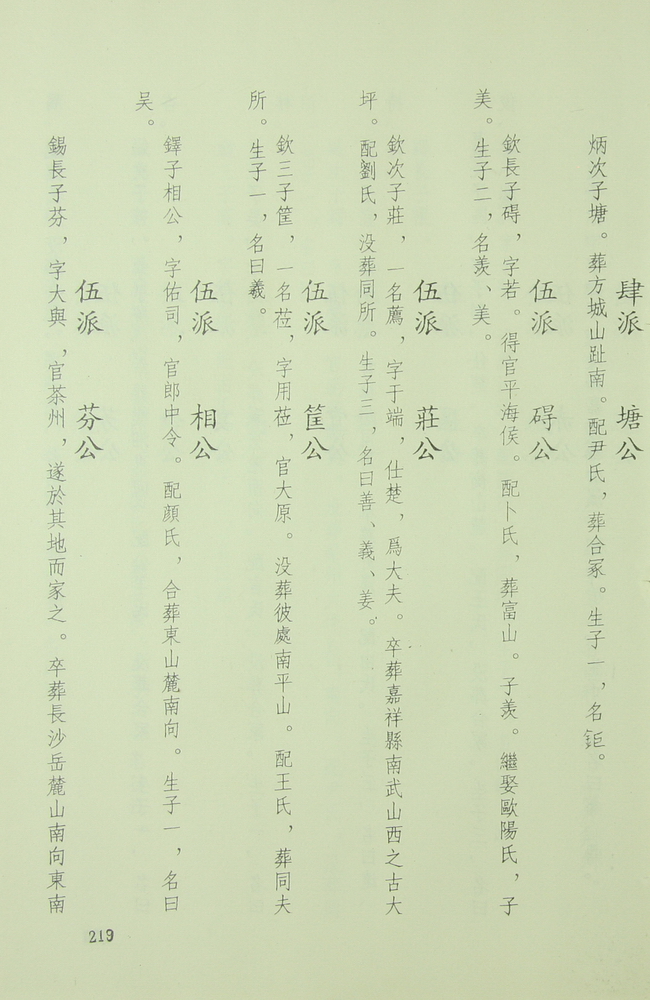 肆派　塘公
炳次子塘。葬方城山趾南。配尹氏，葬合冢。生子一，名鉅。
伍派　碍公
欽長子碍，字若。得官平海侯。配卜氏，葬富山。子羨。繼娶歐陽氏，子
美。生子二，名羨、美。
伍派　莊公
欽次子莊，一名薦，字于端，仕楚，爲大夫。卒葬嘉祥縣南武山西之古大
坪。配劉氏，没葬同所。生子三，名曰善、義、姜。
伍派　筐公
欽三子筐，一名莅，字用莅，官大原。没葬彼處南平山。配王氏，葬同夫
所。生子一，名曰羲。
伍派　相公
鐸子相公，字佑司，官郎中令。配顔氏，合葬東山麓南向。生子一，名曰
吴。
伍派　芬公
錫長子芬，字大與，官茶州，遂於其地而家之。卒葬長沙岳麓山南向東南
219